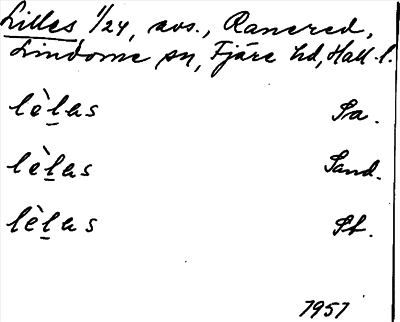 Lilles 1/24, avs., Ranered,
Lindome sn, Fjäre hd, Hall. l.
lèḻas Sa.
lèḻas Sand.
lèḻas St.
1957